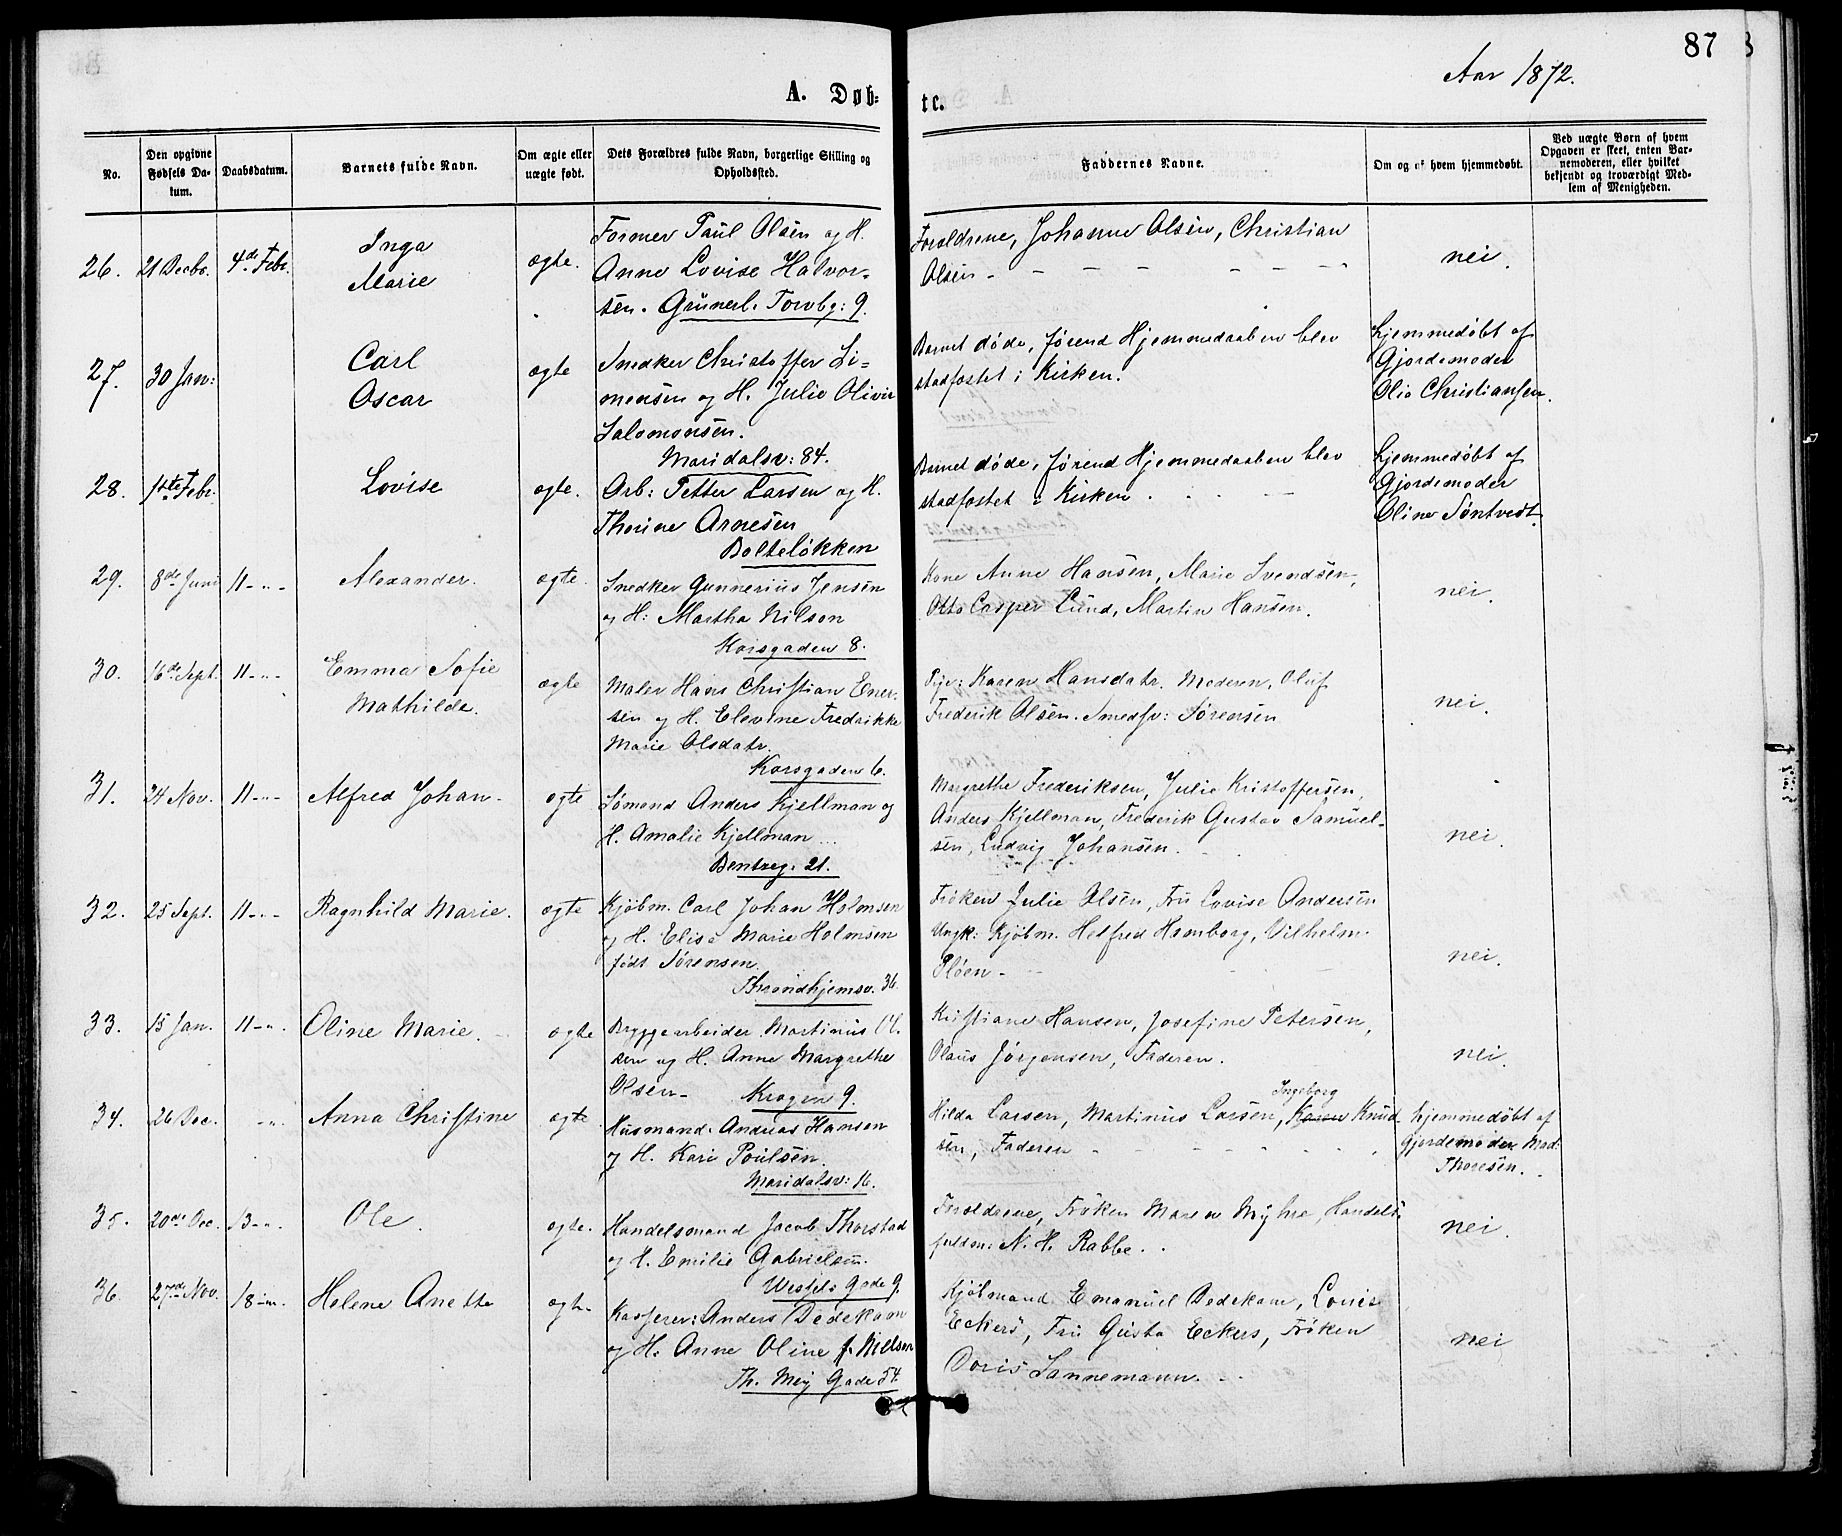 87
Aar 1872.
A. Døb-
te.
No.
Den opgivne Fødsels Da-tum.
Daabsdatum.
Barnets fulde Navn.
Om ægte eller uægte født.
Dets Forældres fulde Navn, borgerlige Stilling og Opholdssted.
Faddernes Navne.
Om og af hvem hjemmedøbt.
Ved uægte Børn af hvem Opgaven er skeet, enten Bar-nemoderen, eller hvilket bekjendt og troværdigt Med-lem af Menigheden.
26. 21 Decbr. 4de Febr. Inga Marie ægte.
Former Paul Olsen og H.
Anne Lovise Halvor-
sen. Grünerl. Torvbg: 9.
Forældrene, Johanne Olsen, Christian
Olsen - nei.
27. 30 Jan: Carl Oscar ægte
Snedker Christoffer Si-
mensen og H. Julie Olivie
Salomonsen.
Maridalsv: 84.
Barnet døde, førend Hjemmedaaben blev
stadfæstet i Kirken.
hjemmedøbt af
Gjordemoder
Olia Christiansen.
28. 1ste Febr. Lovise ægte.
Arb: Petter Larsen og H.
Thorine Arnesen
Bolteløkken
Barnet døde, førend Hjemmedaaben blev
stadfæstet i Kirken.
hjemmedøbt af
Gjordemoder
Oline Söntvedt.
29. 8de Juni 11-"- Alexander. ægte.
Snedker Gunnerius Jensen
og H: Martha Nilson
Korsgaden 8.
Kone Anne Hansen, Marie Svendsen,
Otto Casper Lund, Martin Hansen.
nei.
30. 16de Sept. 11-"- Emma Sofie Mathilde. ægte
Maler Hans Christian Ener-
sen og H. Elevine Fredrikke
Marie Olsdatr.
Korsgaden 6.
Pige: Karen Hansdatr. Moderen, Oluf
Frederik Olsen. Smedsv: Sørensen
nei.
31. 24 Nov. 11-"- Alfred Johan- ægte
Sømand Anders Kjellman og
H. Amalie Kjellman
Bentseg. 21.
Margrethe Frederiksen, Julie Kristoffersen,
Anders Kjellman, Frederik Gustav Samuel-
sen, Ludvig Johansen.
nei.
32. 25 Sept. 11-"- Ragnhild Marie. ægte
Kjøbm. Carl Johan Holmsen
og H. Elise Marie Holmsen
født Sørensen.
Throndhjemsv. 36.
Frøken Julie Olsen, Fru Lovise Andersen
Ungk: Kjøbm. Helfred Homborg, Vilhelm
Pløen-
nei.
33. 15 Jan. 11-"- Oline Marie. ægte
Bryggearbeider Martinus Ol-
sen og H. Anne Margrethe
Olsen- Krogen 9.
Kristiane Hansen, Josefine Petersen,
Olaus Jørgensen, Faderen.
nei.
34. 26 Dec. -"- Anna Christine ægte
Husmand Andreas Hansen
og H. Kari Poulsen.
Maridalsv: 16.
Ingeborg
Hilda Larsen, Martinus Larsen, Karen Knud-
sen, Faderen
hjemmedøbt af
Gjordemoder Mad:
Thoresen.
35. 20de Dec. 13-"- Ole. ægte.
Handelsmand Jacob Thorstad
og H. Emilie Gabrielsen.
Wessels Gade 9.
Forældrene, Frøken Maren Myhre, Handels-
fuldm: N. H. Rabbe.
nei.
36. 27de Nov. 18-"- Helene Anette ægte
Kasserer: Anders Dedekam
og H. Anne Oline f. Nielsen
Th. Mey Gade 54.
Kjøbmand Emanuel Dedekam, Louis
Eckers, Fru Gusta Eckers, Frøken
Doris Sannemann.
nei